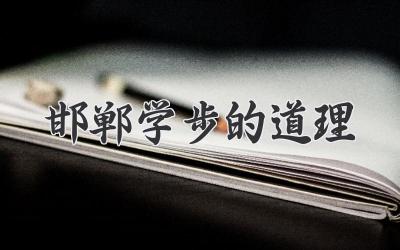 邯郸学步的道理